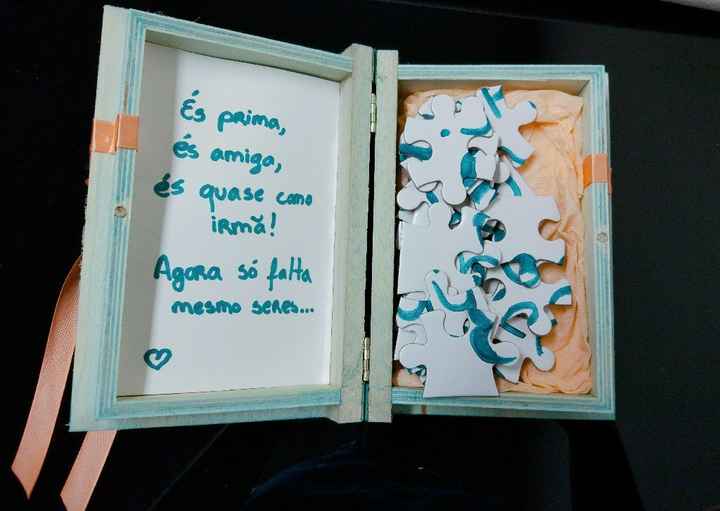 És prima,
és amiga,
és quase como
irmã!
Agora só falta
mesmo seres...